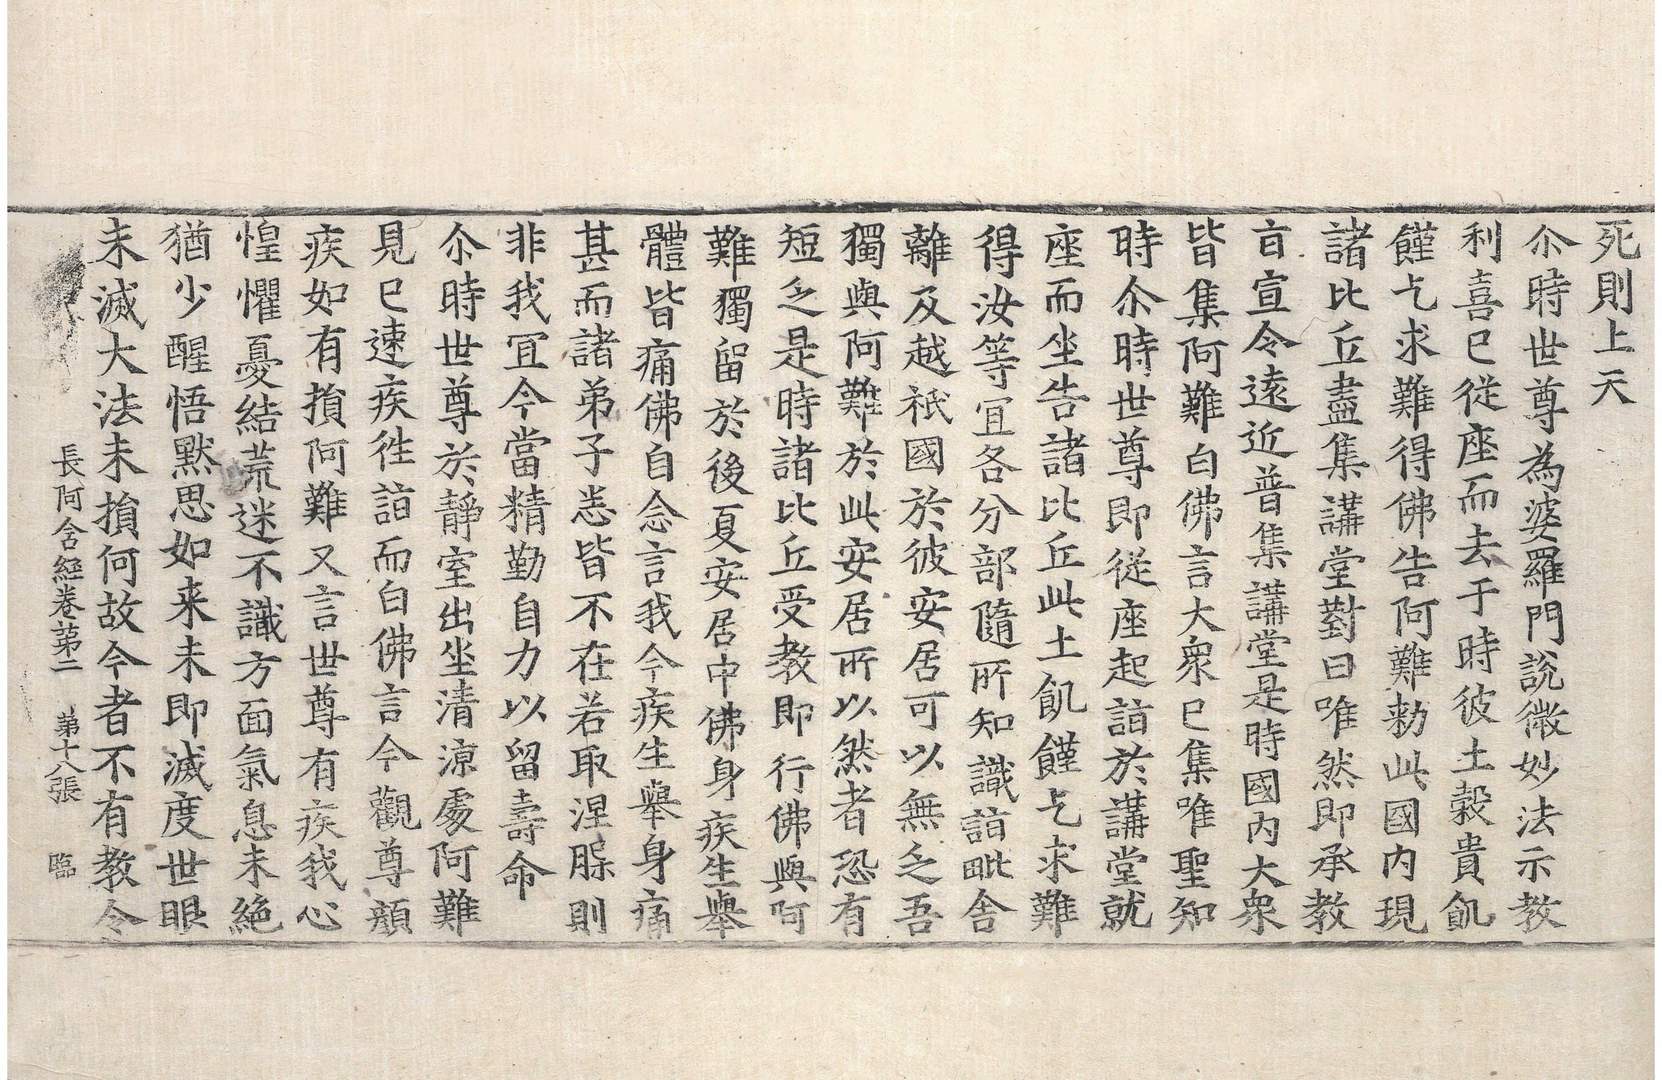 死則上天
尒時世尊為婆羅門說微妙法示教
利喜已從座而去于時彼土穀貴飢
饉乞求難得佛告阿難勑此國內現
諸比丘盡集講堂對曰唯然即承教
㫖宣令遠近普集講堂是時國内大衆
皆集阿難白佛言大衆已集唯聖知
時尒時世尊即從座起詣於講堂就
座而坐告諸比丘此土飢饉乞求難
得汝等冝各分部隨所知識詣毗舍
離及越祇國於彼安居可以無乏吾
獨與阿難於此安居所以然者恐有
短乏是時諸比丘受教即行佛與阿
難獨留於後夏安居中佛身疾生舉
體皆痛佛自念言我今疾生舉身痛
甚而諸弟子悉皆不在若取涅槃則
非我冝今當精勤自力以留壽命
尒時世尊於靜室出坐清涼處阿難
見已速疾徃詣而白佛言今觀尊顔
疾如有損阿難又言世尊有疾我心
惶懼憂結荒迷不識方面氣息未絶
猶少醒悟默思如来未即滅度世眼
未滅大法未損何故今者不有教令
長阿含經卷第二 第十八張 臨